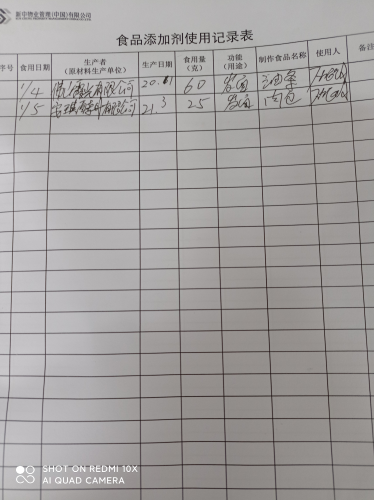 新中物业管理(中国)有限公司
食品添加剂使用记录表
序号 食用日期 生产者（原材料生产单位） 生产日期 食用量（克） 功能（用途） 制作食品名称 使用人 备注
1/4 有限公司 20. 60 油条
1/5 有限公司 21.3 25 肉包
SHOT ON REDMI 10X
AI QUAD CAMERA